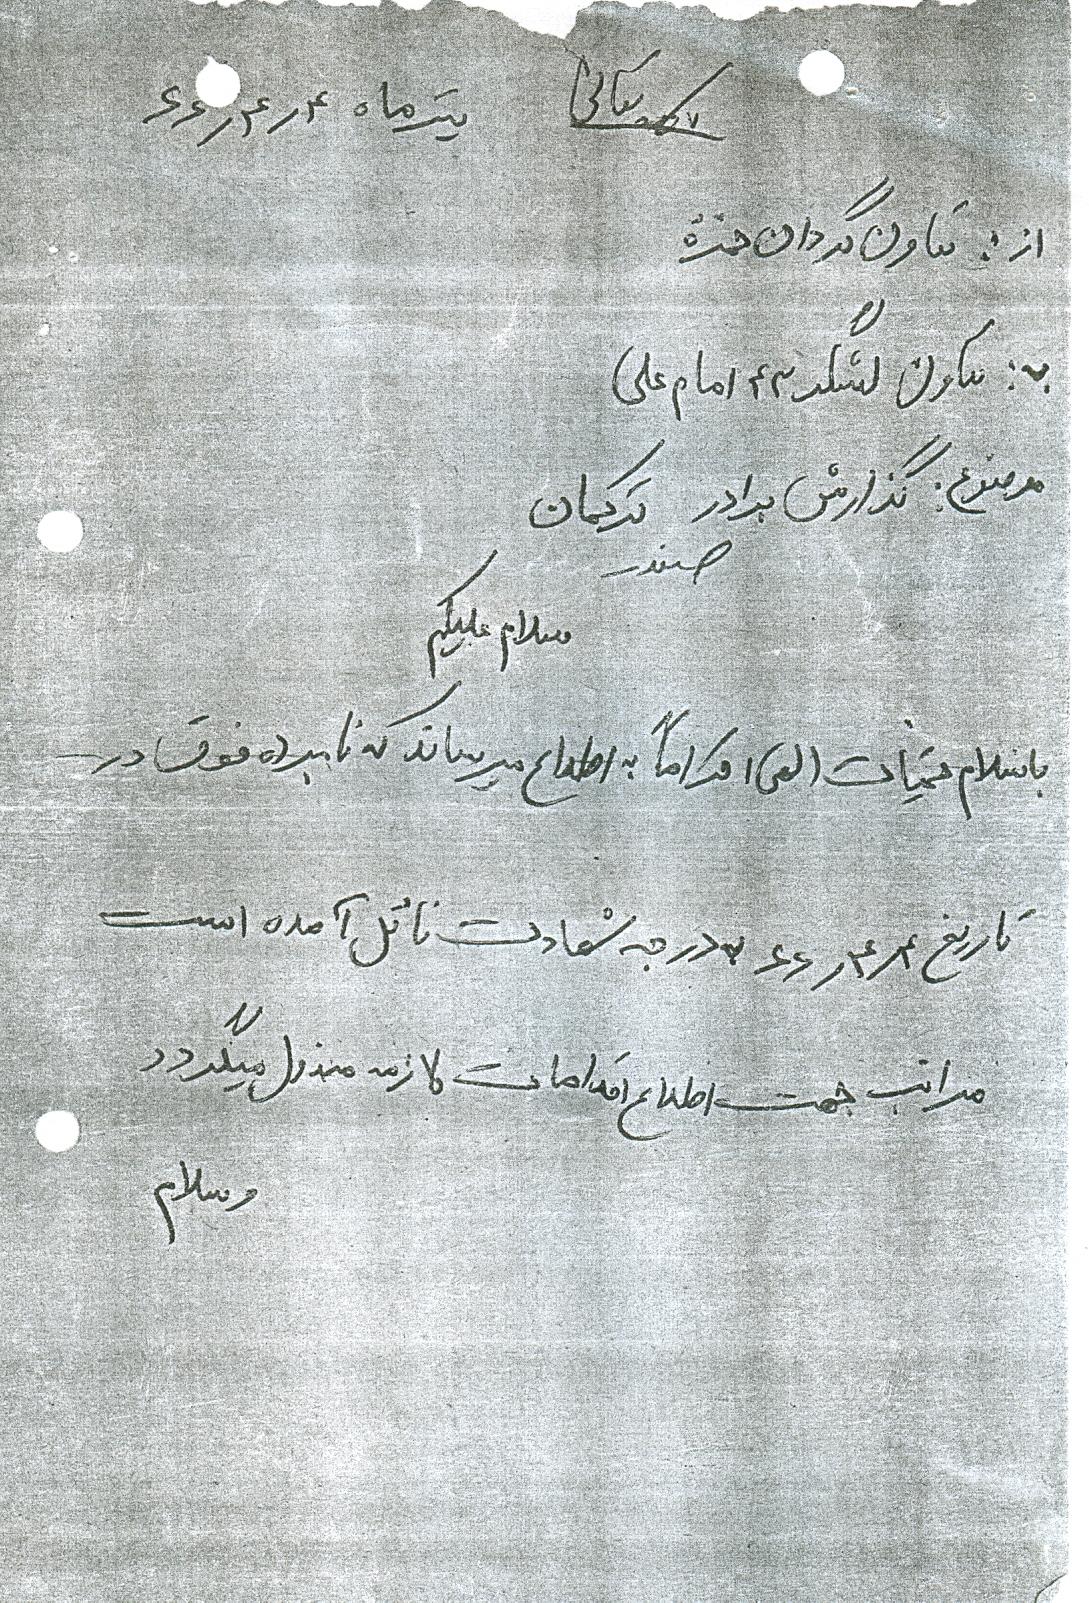 بسمه تعالی
تیر ماه ۶۶٫۴٫۴
از: تعاون گردان حمزه
به: تعاون لشگر ۴۳ امام علی
موضوع: گذارش برادر ترکمان
صفدر
سلام علیکم
با سلام و تحیات الهی احتراماً به اطلاع میرساند که نامبرده فوق در
تاریخ ۶۶٫۴٫۴ به درجه شهادت نائل آمده است
مراتب جهت اطلاع اقدامات لازمه منذول میگردد
وسلام